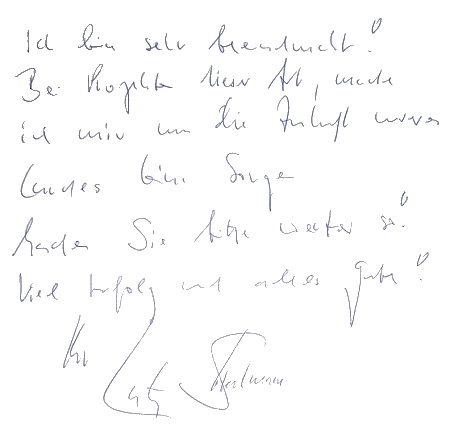 Ich bin sehr beeindruckt!
Bei Projekten dieser Art, mache
ich mir um die Zukunft unseres
Landes keine Sorgen
Machen Sie bitte weiter so!
Viel Erfolg und alles Gute!
Ihr